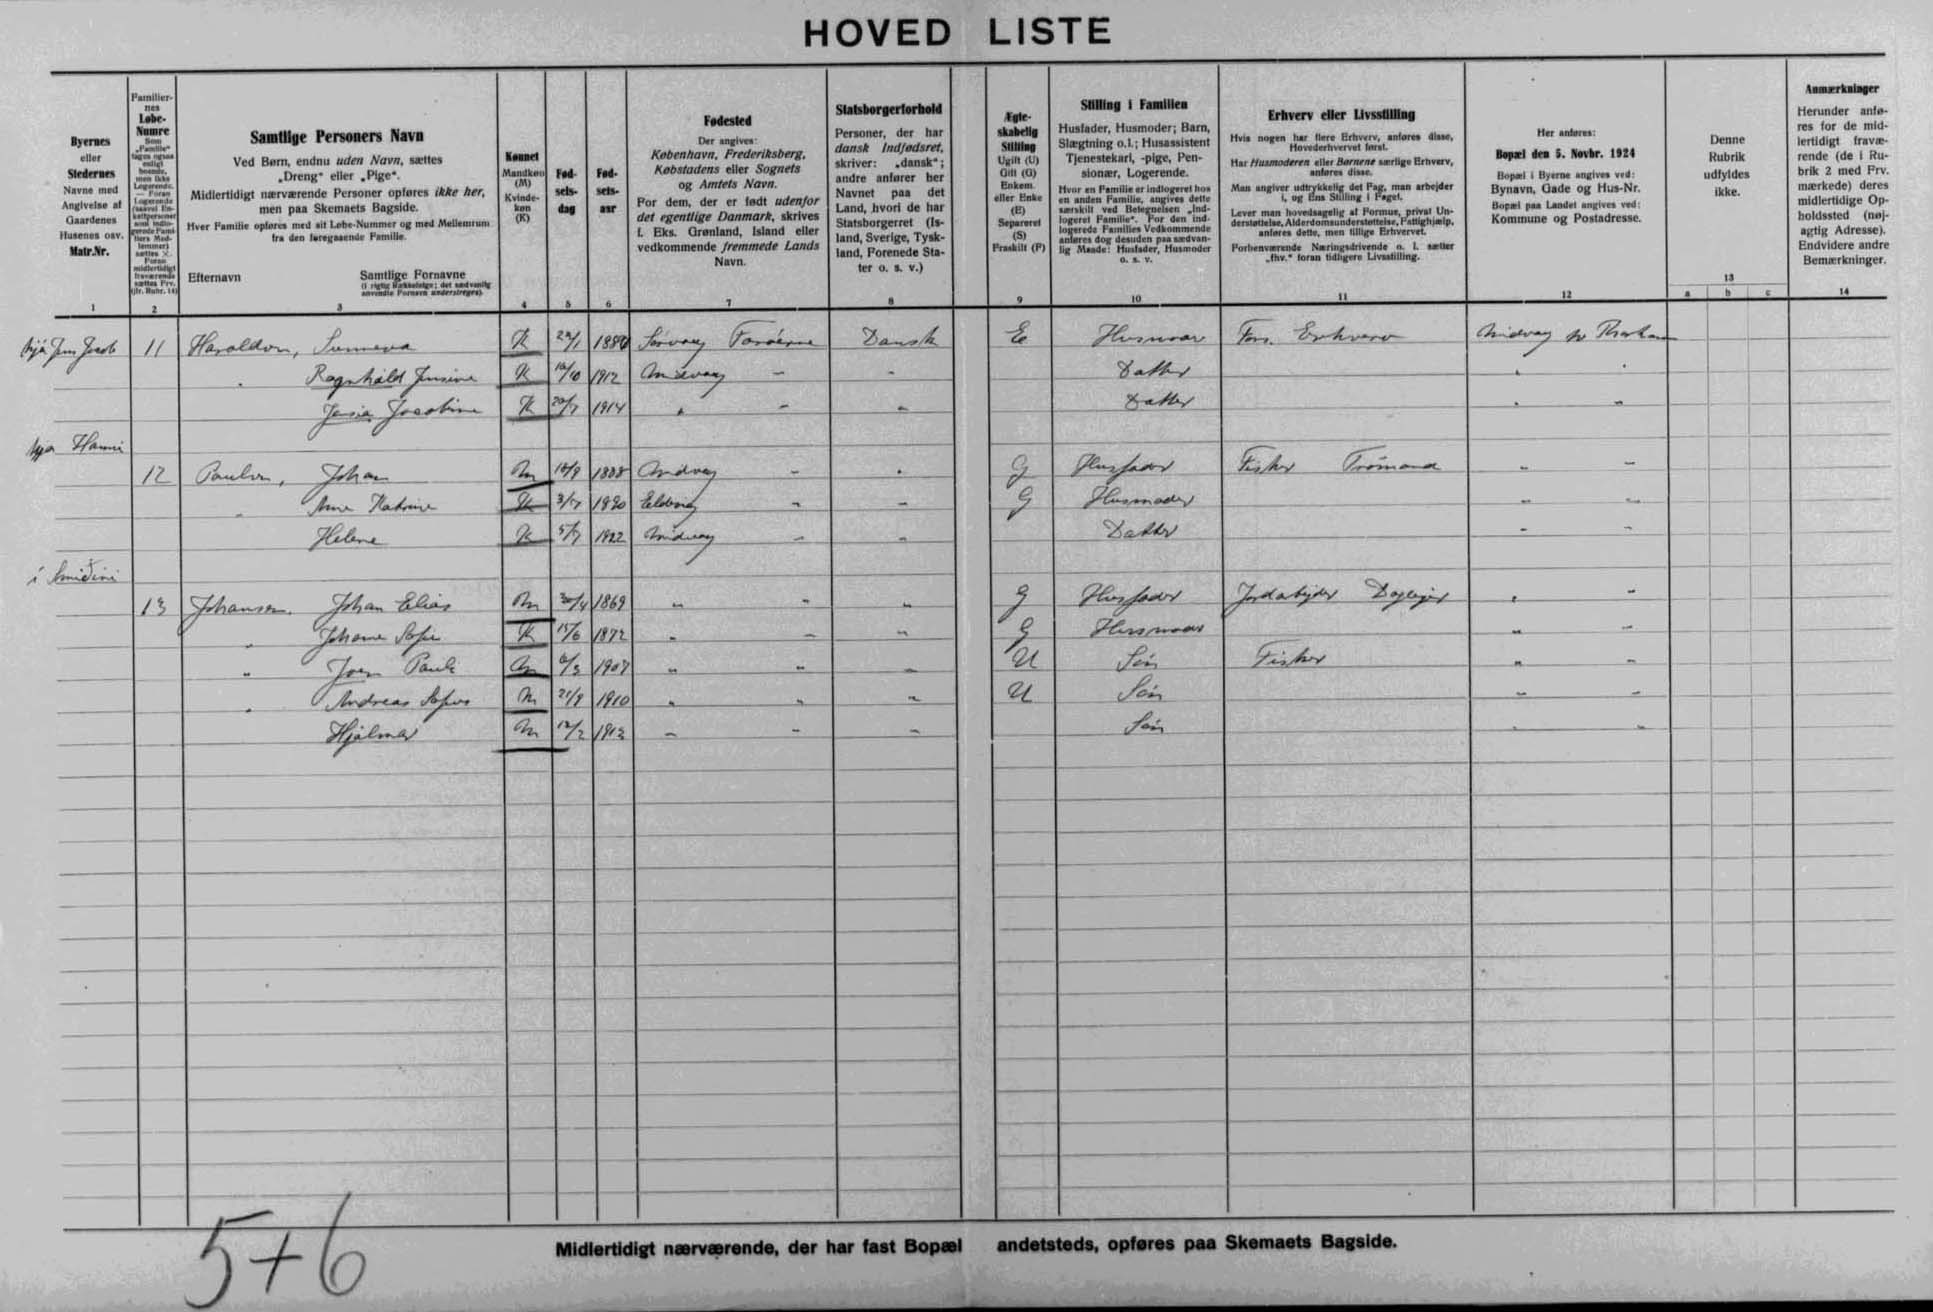 HOVED LISTE
Byernes
eller
Stedernes
Navne med
Angivelse af
Gaardenes
Husenes osv.
Matr.Nr.
1
Familier-
nes
Løbe-
Numre
2
Samtlige Personers Navn
Ved Børn, endnu uden Navn, sættes
„Dreng“ eller „Pige“.
Midlertidigt nærværende Personer opføres ikke her,
men paa Skemaets Bagside.
Hver Familie opføres med sit Løbe-Nummer og med Mellemrum
fra den foregaaende Familie.
Efternavn
Samtlige Fornavne
(i rigtig Rækkefølge; det sædvanlig
anvendte Fornavn understreges).
3
Kønnet
Mandkøn
(M)
Kvinde-
køn
(K)
4
Fød-
sels-
dag
5
Fød-
sels-
aar
6
Fødested
Der angives:
København, Frederiksberg,
Købstadens eller Sognets
og Amtets Navn.
For dem, der er født udenfor
det egentlige Danmark, skrives
f. Eks. Grønland, Island eller
vedkommende fremmede Lands
Navn.
7
Statsborgerforhold
Personer, der har
dansk Indfødsret,
skriver: „dansk“;
andre anfører her
Navnet paa det
Land, hvori de har
Statsborgerret (Is-
land, Sverige, Tysk-
land, Forenede Sta-
ter o. s. v.)
8
Ægte-
skabelig
Stilling
Ugift (U)
Gift (G)
Enkem.
eller Enke
(E)
Separeret
(S)
Fraskilt (F)
9
Stilling i Familien
Husfader, Husmoder; Barn,
Slægtning o.l.; Husassistent
Tjenestekarl, -pige, Pen-
sionær, Logerende.
Hvor en Familie er indlogeret hos
en anden Familie, angives dette
særskilt ved Betegnelsen „Ind-
logeret Familie“. For den ind-
logerede Families Vedkommende
anføres dog desuden paa sædvan-
lig Maade: Husfader, Husmoder
o. s. v.
10
Erhverv eller Livsstilling
Hvis nogen har flere Erhverv, anføres disse,
Hovederhvervet først.
Har Husmoderen eller Børnene særlige Erhverv,
anføres disse.
Man angiver udtrykkelig det Fag, man arbejder
i, og Ens Stilling i Faget.
Lever man hovedsagelig af Formue, privat Un-
derstøttelse, Alderdomsunderstøttelse, Fattighjælp,
anføres dette, men tillige Erhvervet.
Forhenværende Næringsdrivende o. l. sætter
„fhv.“ foran tidligere Livsstilling.
11
Her anføres:
Bopæl den 5. Novbr. 1924
Bopæl i Byerne angives ved:
Bynavn, Gade og Hus-Nr.
Bopæl paa Landet angives ved:
Kommune og Postadresse.
12
Denne
Rubrik
udfyldes
ikke.
13
a b c
Anmærkninger
Herunder anfø-
res for de mid-
lertidigt fravæ-
rende (de i Ru-
brik 2 med Frv.
mærkede) deres
midlertidige Op-
holdssted (nøj-
agtig Adresse).
Endvidere andre
Bemærkninger.
14
Jens Jacob 11 Haraldsen, Sunneva K 1880 Sörvaag Faröerne Dansk E Husmoder Erhverv Midvaag
" Ragnhild Jensine K 1912 Midvaag - - Datter " "
Jensia Jacobine K 1914 " - " Datter " "
Hanni
12 Paulsen, Johan M 1888 Midvag - " G Husfader Fisker Trömand " "
" Anna Katrine K 3/7 1890 - - G Husmoder " "
Helene K 5/7 1922 Midvaag - " Datter " "
í Smiðini
13 Johansen, Johan Elias M 30/4 1869 " " " G Husfader Jordabejder Daglejer " "
" Johanne Sofie K 15/6 1872 " " " G Husmoder " "
" Joen Pauli M 6/3 1907 " " " U Sön Fisker " "
" Andreas Sofus M 21/8 1910 " " " U Sön " "
" Hjalmar M 12/2 1913 " " " Sön " "
5+6
Midlertidigt nærværende, der har fast Bopæl andetsteds, opføres paa Skemaets Bagside.